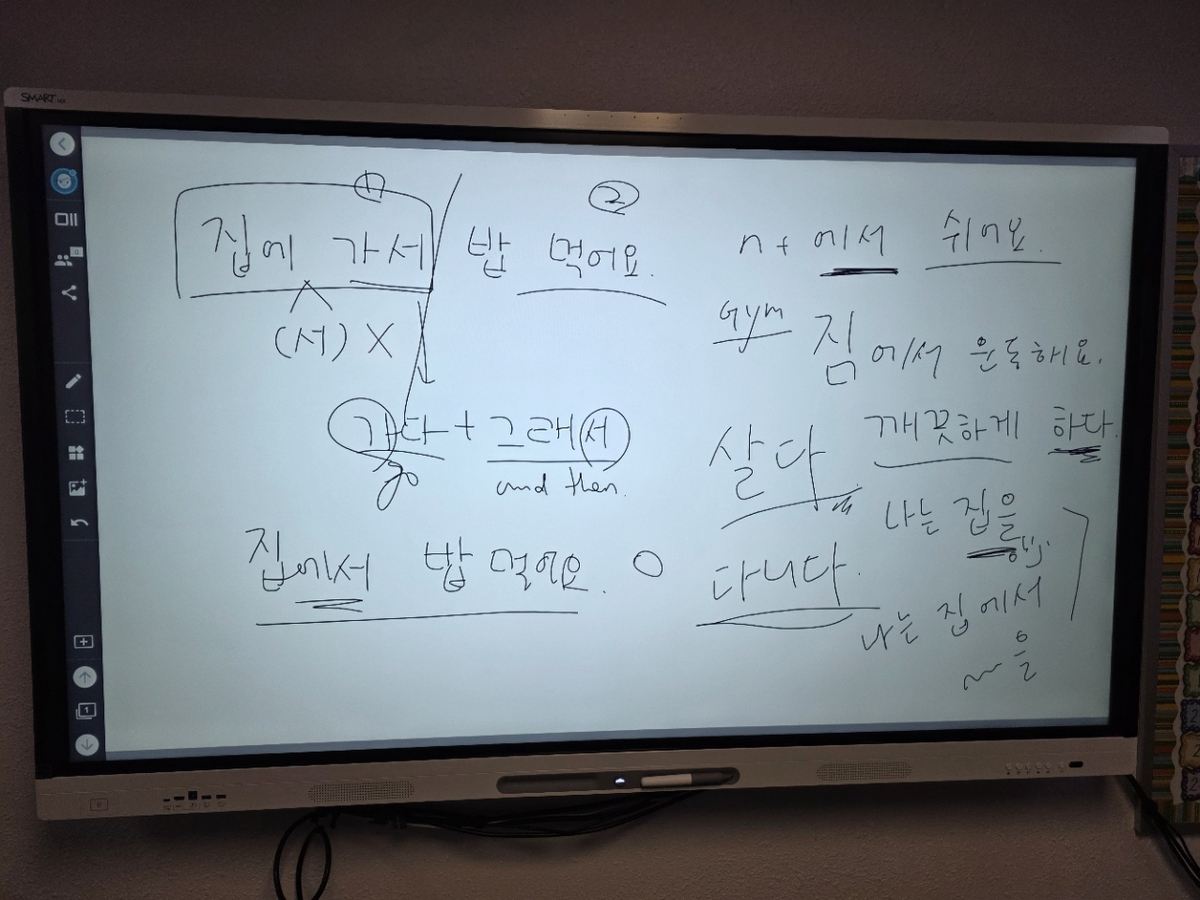 SMART
①
집에 가서 / 밥 먹어요.
②
(서) X
가다 + 그래서
go
and then.
집에서 밥 먹어요. O
n + 에서 쉬어요.
Gym
짐에서 운동해요.
살다
깨끗하게 하다.
나는 집을
obj.
다니다.
나는 집에서
~을